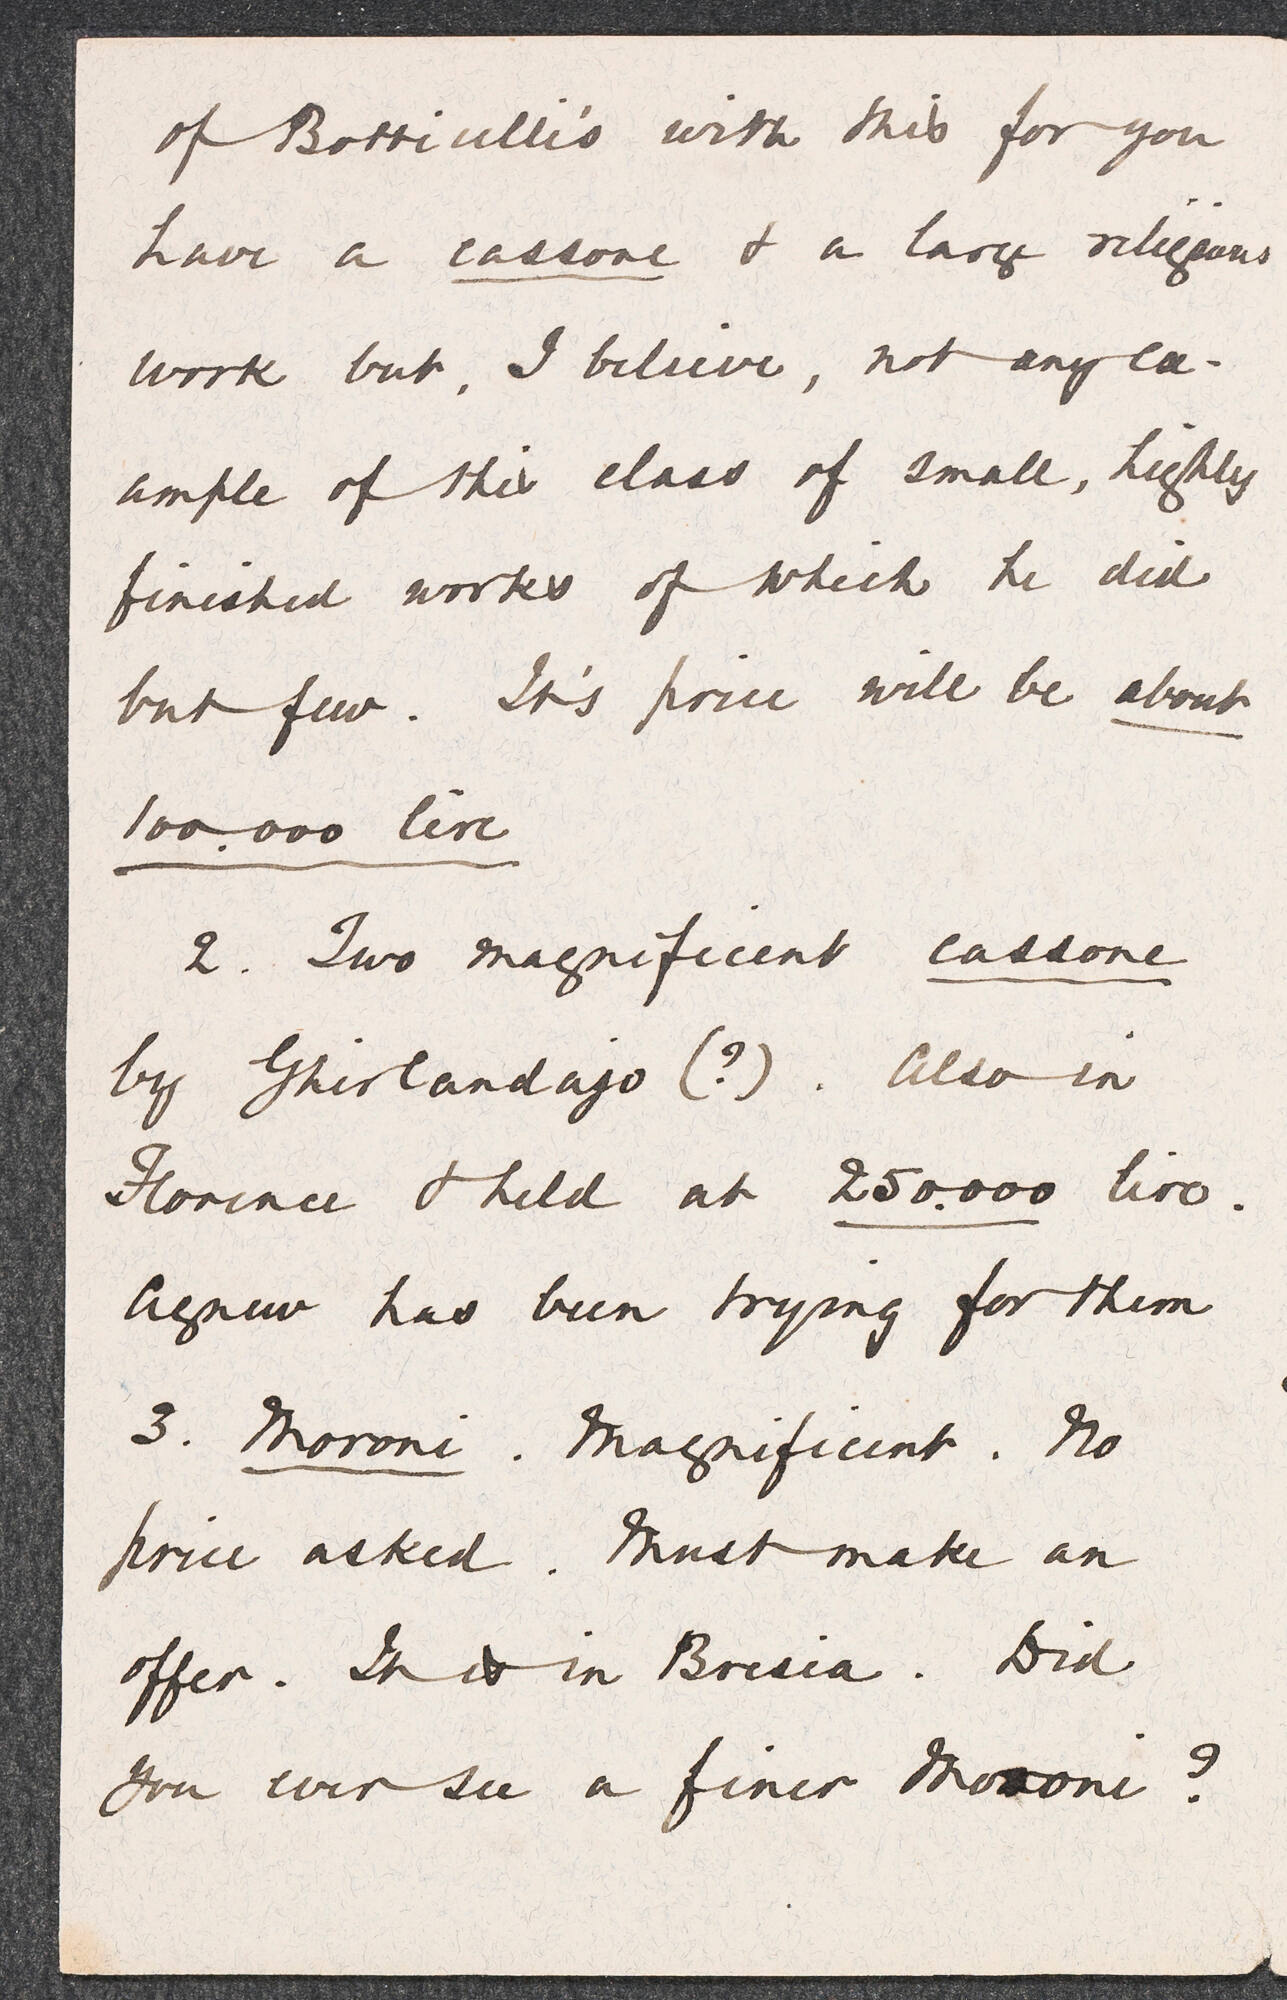 of Botticelli's with this for you
have a cassone & a large religious
work but, I believe, not any ex-
ample of this class of small, highly
finished works of which he did
but few. It's price will be about
100.000 lire
2. Two magnificent cassone
by Ghirlandajo (?). Also in
Florence & held at 250.000 lire.
Agnew has been trying for them
3. Moroni. Magnificent. No
price asked. Must make an
offer. It is in Bresia. Did
you ever see a finer Moroni?